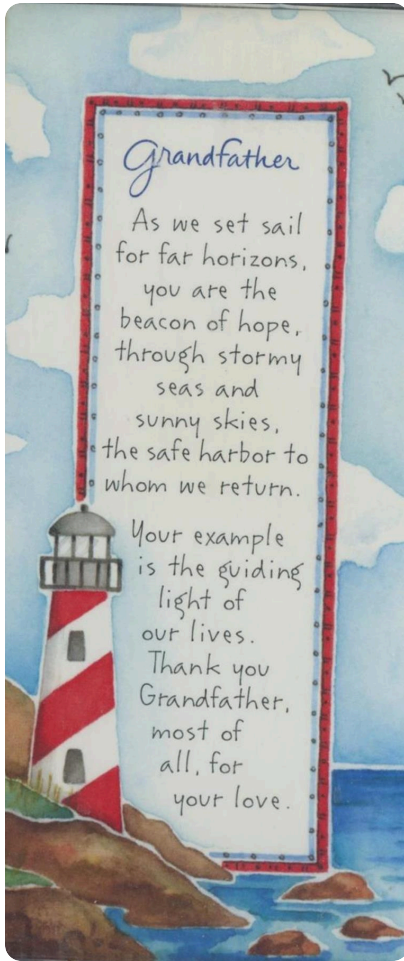 Grandfather
As we set sail
for far horizons,
you are the
beacon of hope,
through stormy
seas and
sunny skies,
the safe harbor to
whom we return.
Your example
is the guiding
light of
our lives.
Thank you
Grandfather,
most of
all, for
your love.